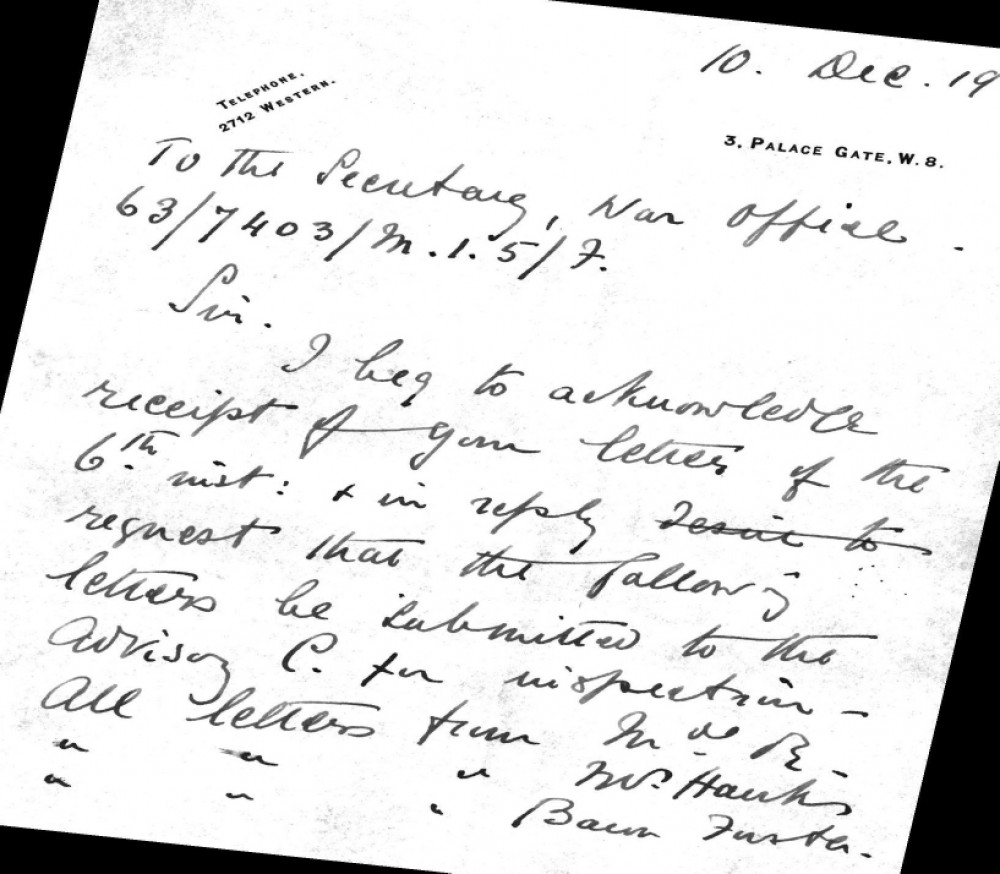 10. Dec. 19
TELEPHONE.
2712 WESTERN.
3, PALACE GATE, W. 8.
To the Secretary, War Office.
63/7403/M.I.5/F.
Sir.
I beg to acknowledge
receipt of your letter of the
6.th inst: & in reply desire to
request that the following
letters be submitted to the
Advisory C. for inspection -
All letters from M. de R.
" " " Mrs. Hawks
" " " Baron